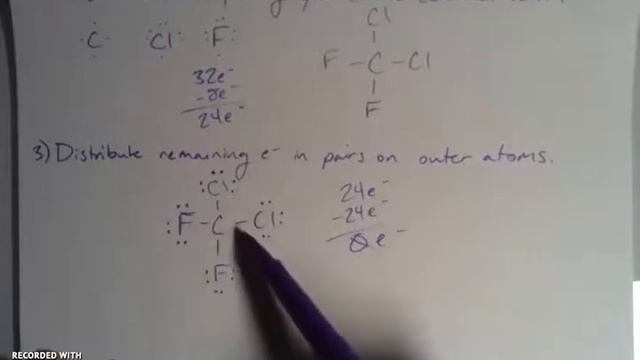 Cl
C Cl F
F - C - Cl
32e-
-8e-
24e-
F
3) Distribute remaining e- in pairs on outer atoms.
Cl
24e-
F - C - Cl
-24e-
0e-
F
RECORDED WITH